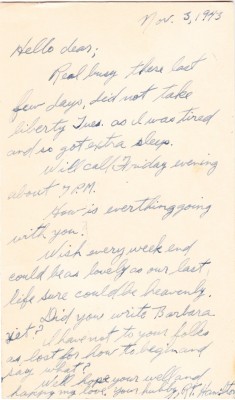 Nov. 3, 1943
Hello dear;
Real busy these last
few days, did not take
liberty Tues. as I was tired
and so got extra sleep.
Will call Friday evening
about 7 P.M.
How is everthing going
with you?
Wish every week end
could be as lovely as our last,
life sure could be heavenly.
Did you write Barbara
yet? I have not to your folks
as lost for how to begin and
say what?
Well hope your well and
happy my love, your hubby,